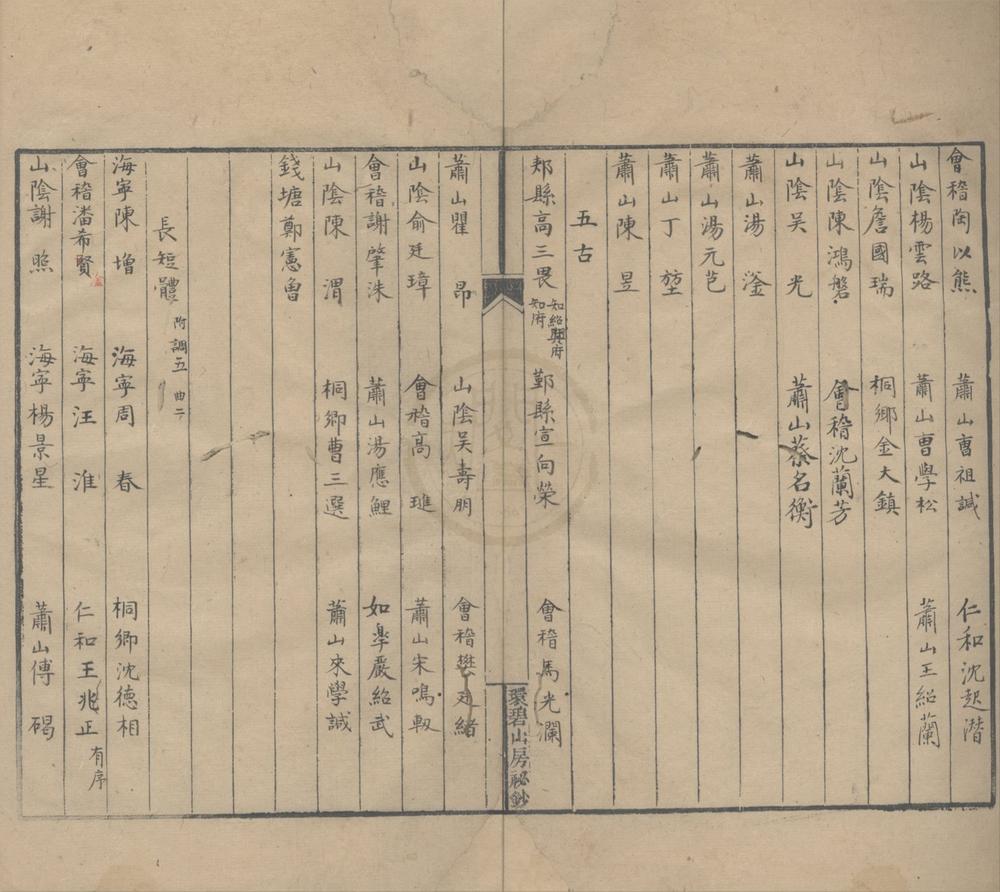 會稽陶以熊　蕭山曹祖諴　仁和沈起潛
山陰楊雲路　蕭山曹學松　蕭山王紹蘭
山陰詹國瑞　桐鄉金大鎮
山陰陳鴻磐　會稽沈蘭芳
山陰吳光　蕭山蔡名衡
蕭山湯淦
蕭山湯元芑
蕭山丁堃
蕭山陳昱
五古
郟縣高三畏　知紹興府知府　鄞縣宣向榮　會稽馬光瀾
環碧山房秘鈔
蕭山瞿昂　山陰吳壽朋　會稽樊廷緒
山陰俞廷璋　會稽高璡　蕭山宋鳴軔
會稽謝肇洙　蕭山湯應鯉　如皋嚴紹武
山陰陳渭　桐鄉曹三選　蕭山來學諴
錢塘鄭憲魯
長短體　附調五　曲二
海寧陳增　海寧周春　桐鄉沈德相
會稽潘希賢　海寧汪淮　仁和王兆正　有序
山陰謝照　海寧楊景星　蕭山傅碣